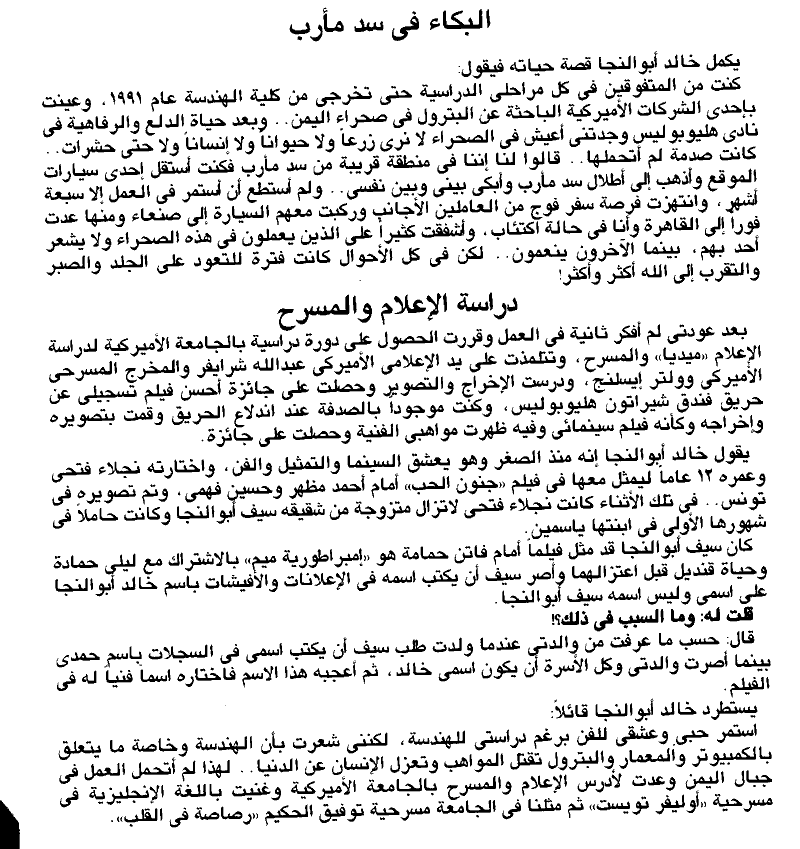 البكاء فى سد مأرب
يكمل خالد أبوالنجا قصة حياته فيقول:
كنت من المتفوقين فى كل مراحلى الدراسية حتى تخرجى من كلية الهندسة عام ١٩٩١، وعينت
بإحدى الشركات الأميركية الباحثة عن البترول فى صحراء اليمن.. وبعد حياة الدلع والرفاهية فى
نادى هليوبوليس وجدتنى أعيش فى الصحراء لا نرى زرعاً ولا حيواناً ولا إنساناً ولا حتى حشرات..
كانت صدمة لم أتحملها.. قالوا لنا إننا فى منطقة قريبة من سد مأرب فكنت أستقل إحدى سيارات
الموقع وأذهب إلى أطلال سد مأرب وأبكى بينى وبين نفسى.. ولم أستطع أن أستمر فى العمل إلا سبعة
أشهر، وانتهزت فرصة سفر فوج من العاملين الأجانب وركبت معهم السيارة إلى صنعاء ومنها عدت
فوراً إلى القاهرة وأنا فى حالة اكتئاب، وأشفقت كثيراً على الذين يعملون فى هذه الصحراء ولا يشعر
أحد بهم، بينما الآخرون ينعمون.. لكن فى كل الأحوال كانت فترة للتعود على الجلد والصبر
والتقرب إلى الله أكثر وأكثر!
دراسة الإعلام والمسرح
بعد عودتى لم أفكر ثانية فى العمل وقررت الحصول على دورة دراسية بالجامعة الأميركية لدراسة
الإعلام «ميديا» والمسرح، وتتلمذت على يد الإعلامى الأميركى عبدالله شرايفر والمخرج المسرحى
الأميركى وولتر إيسلنج، ودرست الإخراج والتصوير وحصلت على جائزة أحسن فيلم تسجيلى عن
حريق فندق شيراتون هليوبوليس، وكنت موجوداً بالصدفة عند اندلاع الحريق وقمت بتصويره
وإخراجه وكأنه فيلم سينمائى وفيه ظهرت مواهبى الفنية وحصلت على جائزة.
يقول خالد أبوالنجا إنه منذ الصغر وهو يعشق السينما والتمثيل والفن، واختارته نجلاء فتحى
وعمره ١٢ عاماً ليمثل معها فى فيلم «جنون الحب» أمام أحمد مظهر وحسين فهمى، وتم تصويره فى
تونس.. فى تلك الأثناء كانت نجلاء فتحى لاتزال متزوجة من شقيقه سيف أبوالنجا وكانت حاملاً فى
شهورها الأولى فى ابنتها ياسمين.
كان سيف أبوالنجا قد مثل فيلماً أمام فاتن حمامة هو «إمبراطورية ميم» بالاشتراك مع ليلى حمادة
وحياة قنديل قبل اعتزالهما وأصر سيف أن يكتب اسمه فى الإعلانات والأفيشات باسم خالد أبوالنجا
على اسمى وليس اسمه سيف أبوالنجا.
قلت له: وما السبب فى ذلك؟!
قال: حسب ما عرفت من والدتى عندما ولدت طلب سيف أن يكتب اسمى فى السجلات باسم حمدى
بينما أصرت والدتى وكل الأسرة أن يكون اسمى خالد، ثم أعجبه هذا الاسم فاختاره اسماً فنياً له فى
الفيلم.
يستطرد خالد أبوالنجا قائلاً:
استمر حبى وعشقى للفن برغم دراستى للهندسة، لكننى شعرت بأن الهندسة وخاصة ما يتعلق
بالكمبيوتر والمعمار والبترول تقتل المواهب وتعزل الإنسان عن الدنيا.. لهذا لم أتحمل العمل فى
جبال اليمن وعدت لأدرس الإعلام والمسرح بالجامعة الأميركية وغنيت باللغة الإنجليزية فى
مسرحية «أوليفر تويست» ثم مثلنا فى الجامعة مسرحية توفيق الحكيم «رصاصة فى القلب».